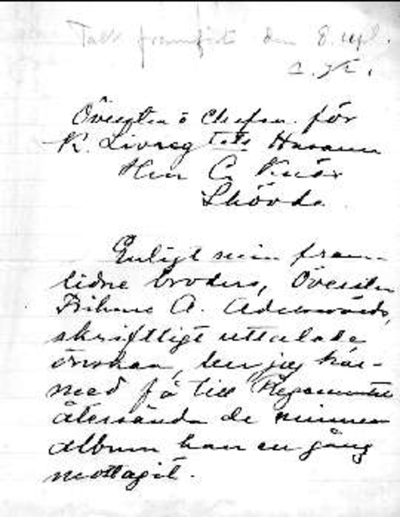 Tack framfört den 8. sept.
Översten o chefen för
K. Livregtets Husarer
Herr C. Knös
Skövde
Enligt min fram-
lidne broders, Översten
Friherre A. Adelswärds,
skriftligt uttalade
önskan, ber jag här-
med få till Regementet
återsända de minnen
album han en gång
mottagit.